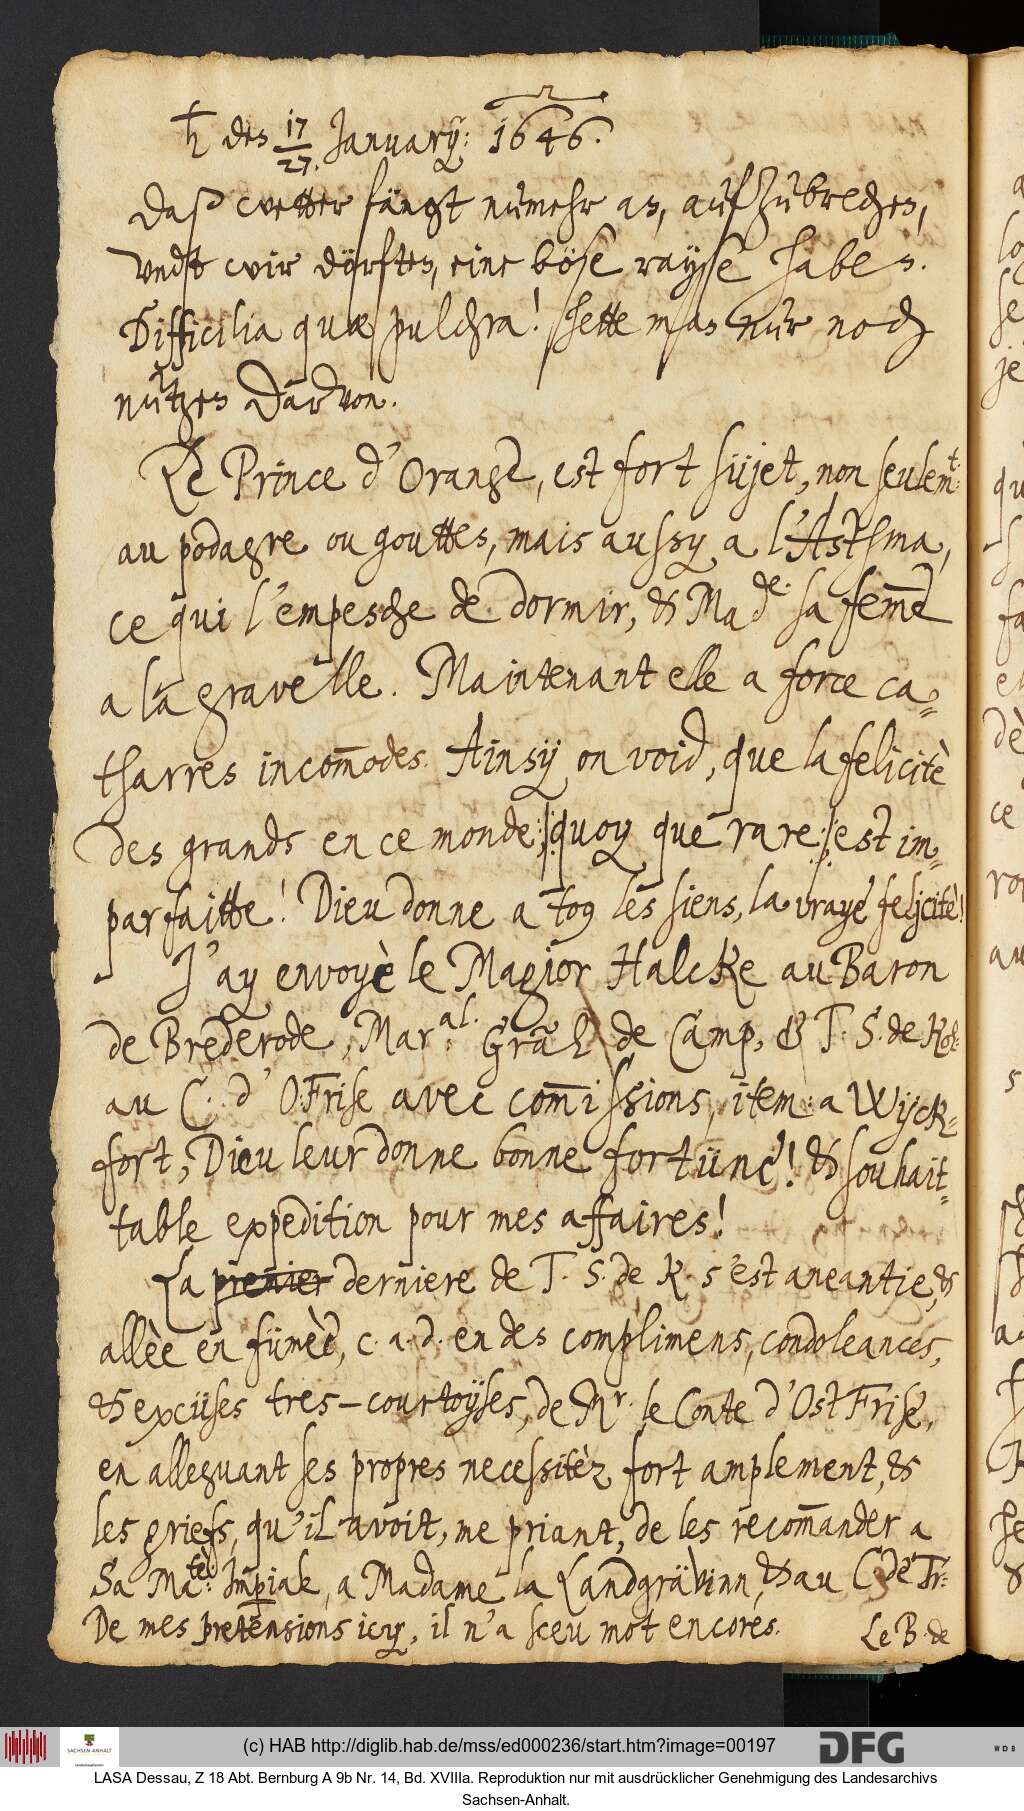 ħ des 17/27. Januarij: 1646.
Daß wetter fängt nůmehr an, aufzůbrechen,
vndt wir dörften, eine böse raÿse haben.
Difficilia quæ pulchra! hette man nůr noch
nůtzen darvon.
Le Prince d'Orange, est fort süjet, non seulem.t
au podagre ou gouttes, mais aussy a l'Asthma,
ce qui l'empesche de dormir, & Made. sa fem̄e
a la gravelle. Maintenant elle a force ca=
tharres incom̄odes. Ainsÿ on void, que la felicitè
des grands en ce monde :/quoy que rare:/ est im=
parfaitte! Dieu donne a to9 les siens, la vraye felicitè!
J'ay envoyè le Magior Halcke au Baron
de Brederode, Mar.al de Camp, & T. S. de
au C. d'O: Frise avec com̄issions, item: a Wijck=
fort, Dieu leur donne bonne fortüne! & souhait=
table expedition pour mes affaires!
La premier derniere de T. S. de K. s'est aneantie, &
allèe en fümèe, c. a. d. en des complimens, condoleances,
& excüses tres-courtoÿses, de Mr. le Conte d'OstFrise,
en alleguant ses propres necessitèz fort amplement, &
les griefs, qu'il avoit, me priant, de les recom̄ander a
Sa Matè: Imp̄iale, a Madame la Landgrävinn, & au C. de Fr:
De mes pretensions icy, il n'a sceu mot encores.
Le B. de
(c) HAB http://diglib.hab.de/mss/ed000236/start.htm?image=00197
SACHSEN-ANHALT
DFG
WDB
LASA Dessau, Z 18 Abt. Bernburg A 9b Nr. 14, Bd. XVIIIa. Reproduktion nur mit ausdrücklicher Genehmigung des Landesarchivs
Sachsen-Anhalt.